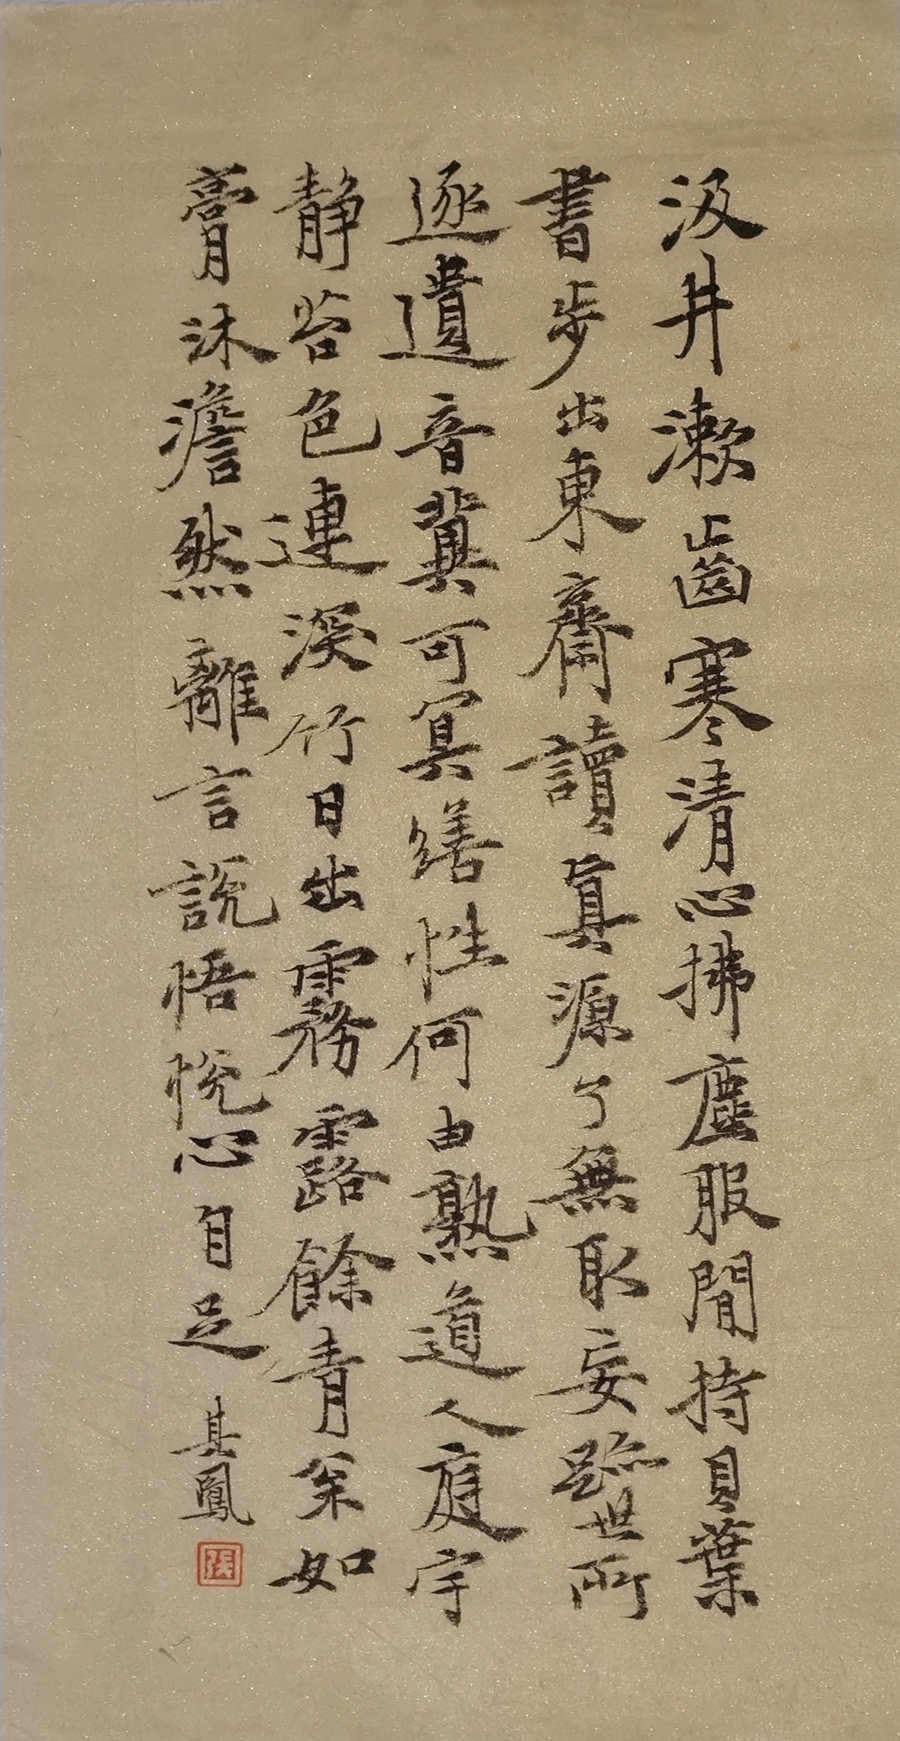 汲井漱齒寒清心拂塵服閒持貝葉
書步出東齋讀真源了無取妄跡世所
逐遺音冀可冥繕性何由熟道人庭宇
静苔色連深竹日出霧露餘青松如
膏沐澹然離言説悟悦心自足
其鳳
張